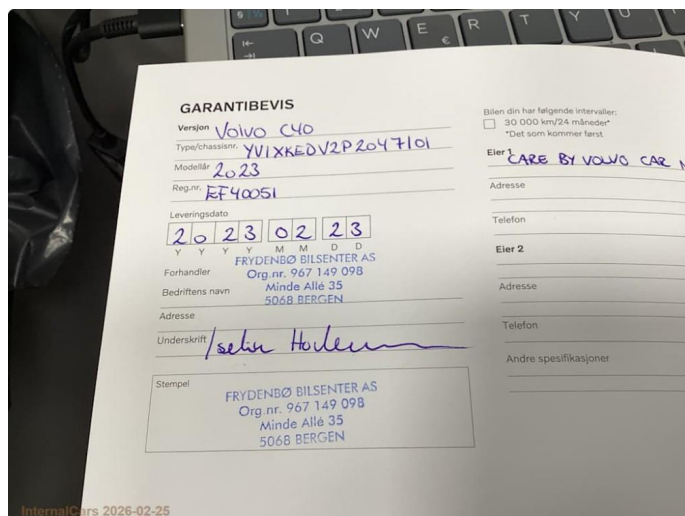 Q W E R T Y U
€
GARANTIBEVIS
Versjon Volvo C40
Type/chassisnr. YV1XKEDV2P2047101
Modellår 2023
Reg.nr. EF40051
Leveringsdato
2023 02 23
Y Y Y Y M M D D
Forhandler
FRYDENBØ BILSENTER AS
Org.nr. 967 149 098
Bedriftens navn
Minde Allé 35
5068 BERGEN
Adresse
Underskrift
Stempel
FRYDENBØ BILSENTER AS
Org.nr. 967 149 098
Minde Allé 35
5068 BERGEN
Bilen din har følgende intervaller:
30 000 km/24 måneder*
*Det som kommer først
Eier 1 CARE BY VOLVO CAR
Adresse
Telefon
Eier 2
Adresse
Telefon
Andre spesifikasjoner
InternalCars 2026-02-25